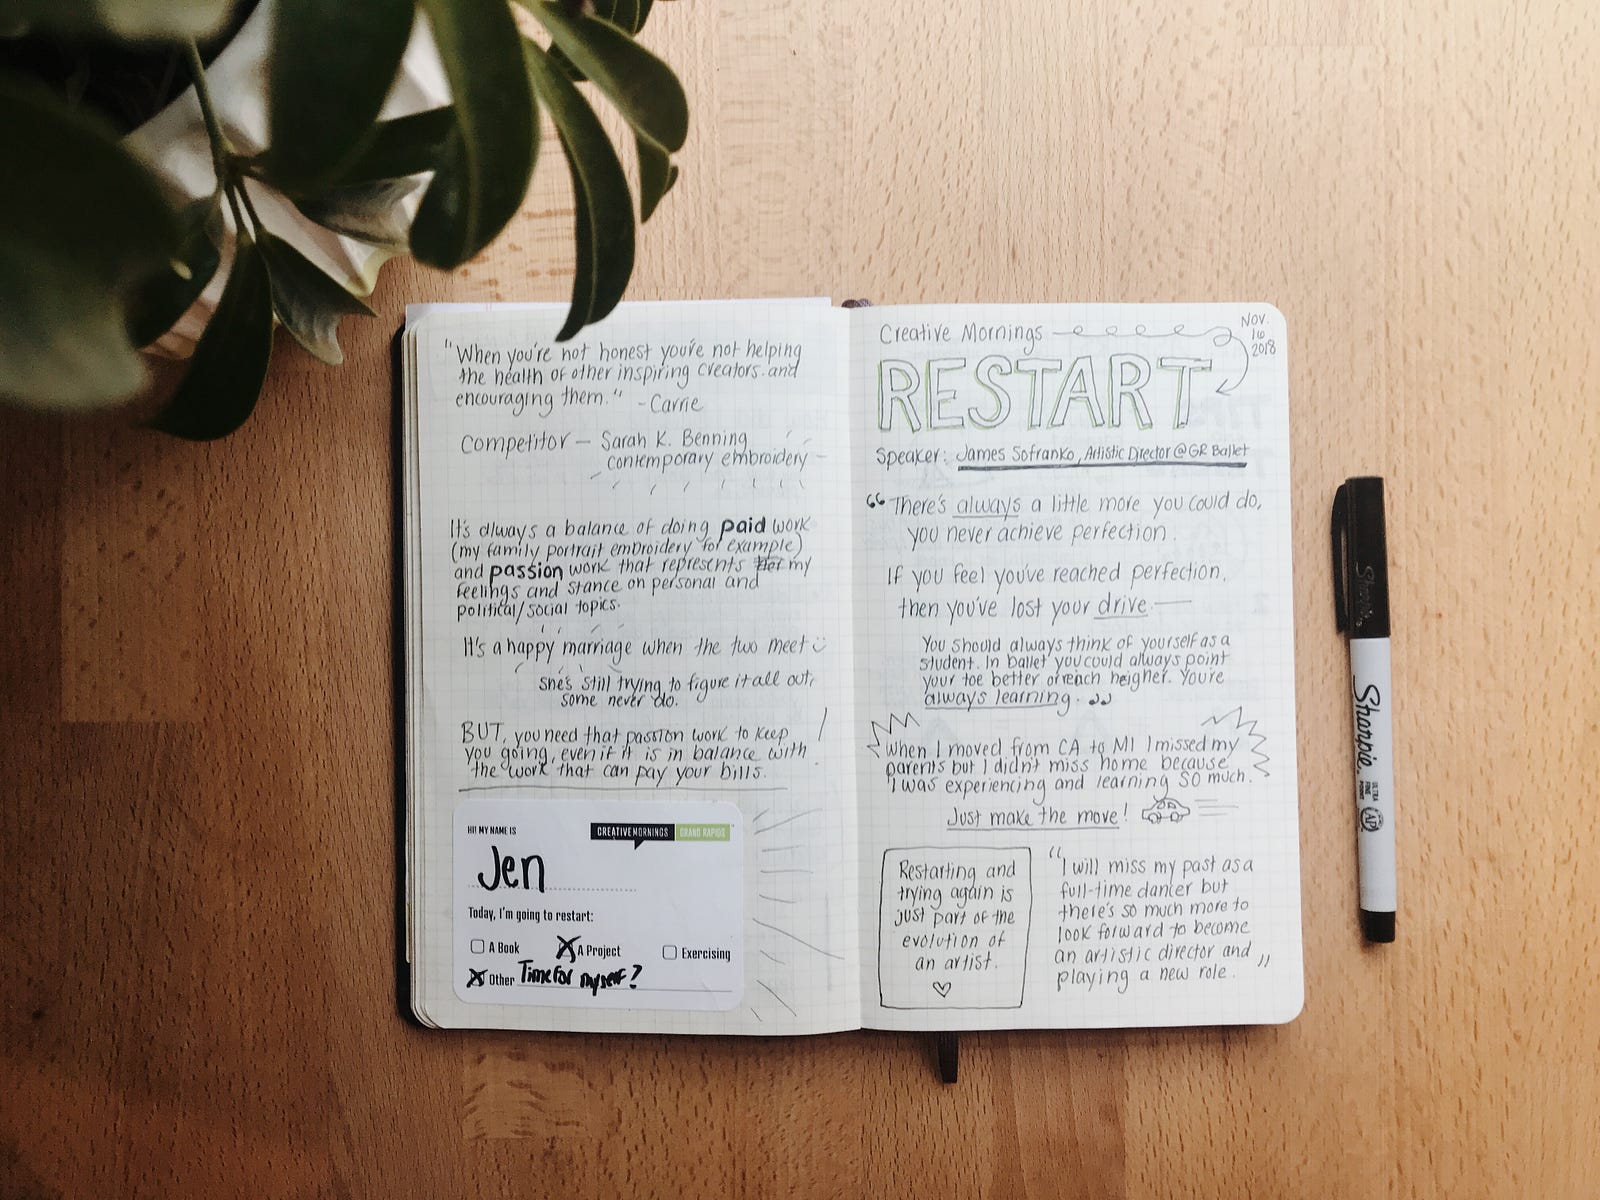 "When you're not honest you're not helping
the health of other inspiring creators and
encouraging them." -Carrie
Competitor — Sarah K. Benning
contemporary embroidery
It's always a balance of doing paid work
(my family portrait embroidery for example)
and passion work that represents my
feelings and stance on personal and
political/social topics.
It's a happy marriage when the two meet
she's still trying to figure it all out,
some never do.
BUT, you need that passion work to keep
you going, even if it is in balance with
the work that can pay your bills.
HI! MY NAME IS
CREATIVEMORNINGS GRAND RAPIDS
Jen
Today, I'm going to restart:
A Book
A Project
Exercising
Other Time for myself?
Creative Mornings
NOV.
16
2018
RESTART
Speaker: James Sofranko, Artistic Director @ GR Ballet
“There's always a little more you could do,
you never achieve perfection.
If you feel you've reached perfection,
then you've lost your drive —
You should always think of yourself as a
student. In ballet you could always point
your toe better or reach heigher. You're
always learning. "
When I moved from CA to MI I missed my
parents but I didn't miss home because
I was experiencing and learning SO much.
Just make the move!
Restarting and
trying again is
just part of the
evolution of
an artist.
"I will miss my past as a
full-time dancer but
there's so much more to
look forward to become
an artistic director and
playing a new role."
Sharpie
Sharpie.
ULTRA
FINE
POINT
AP